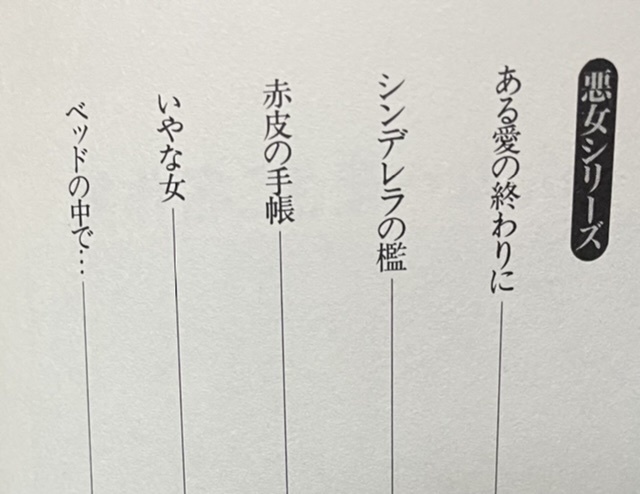 悪女シリーズ
ある愛の終わりに
シンデレラの檻
赤皮の手帳
いやな女
ベッドの中で…